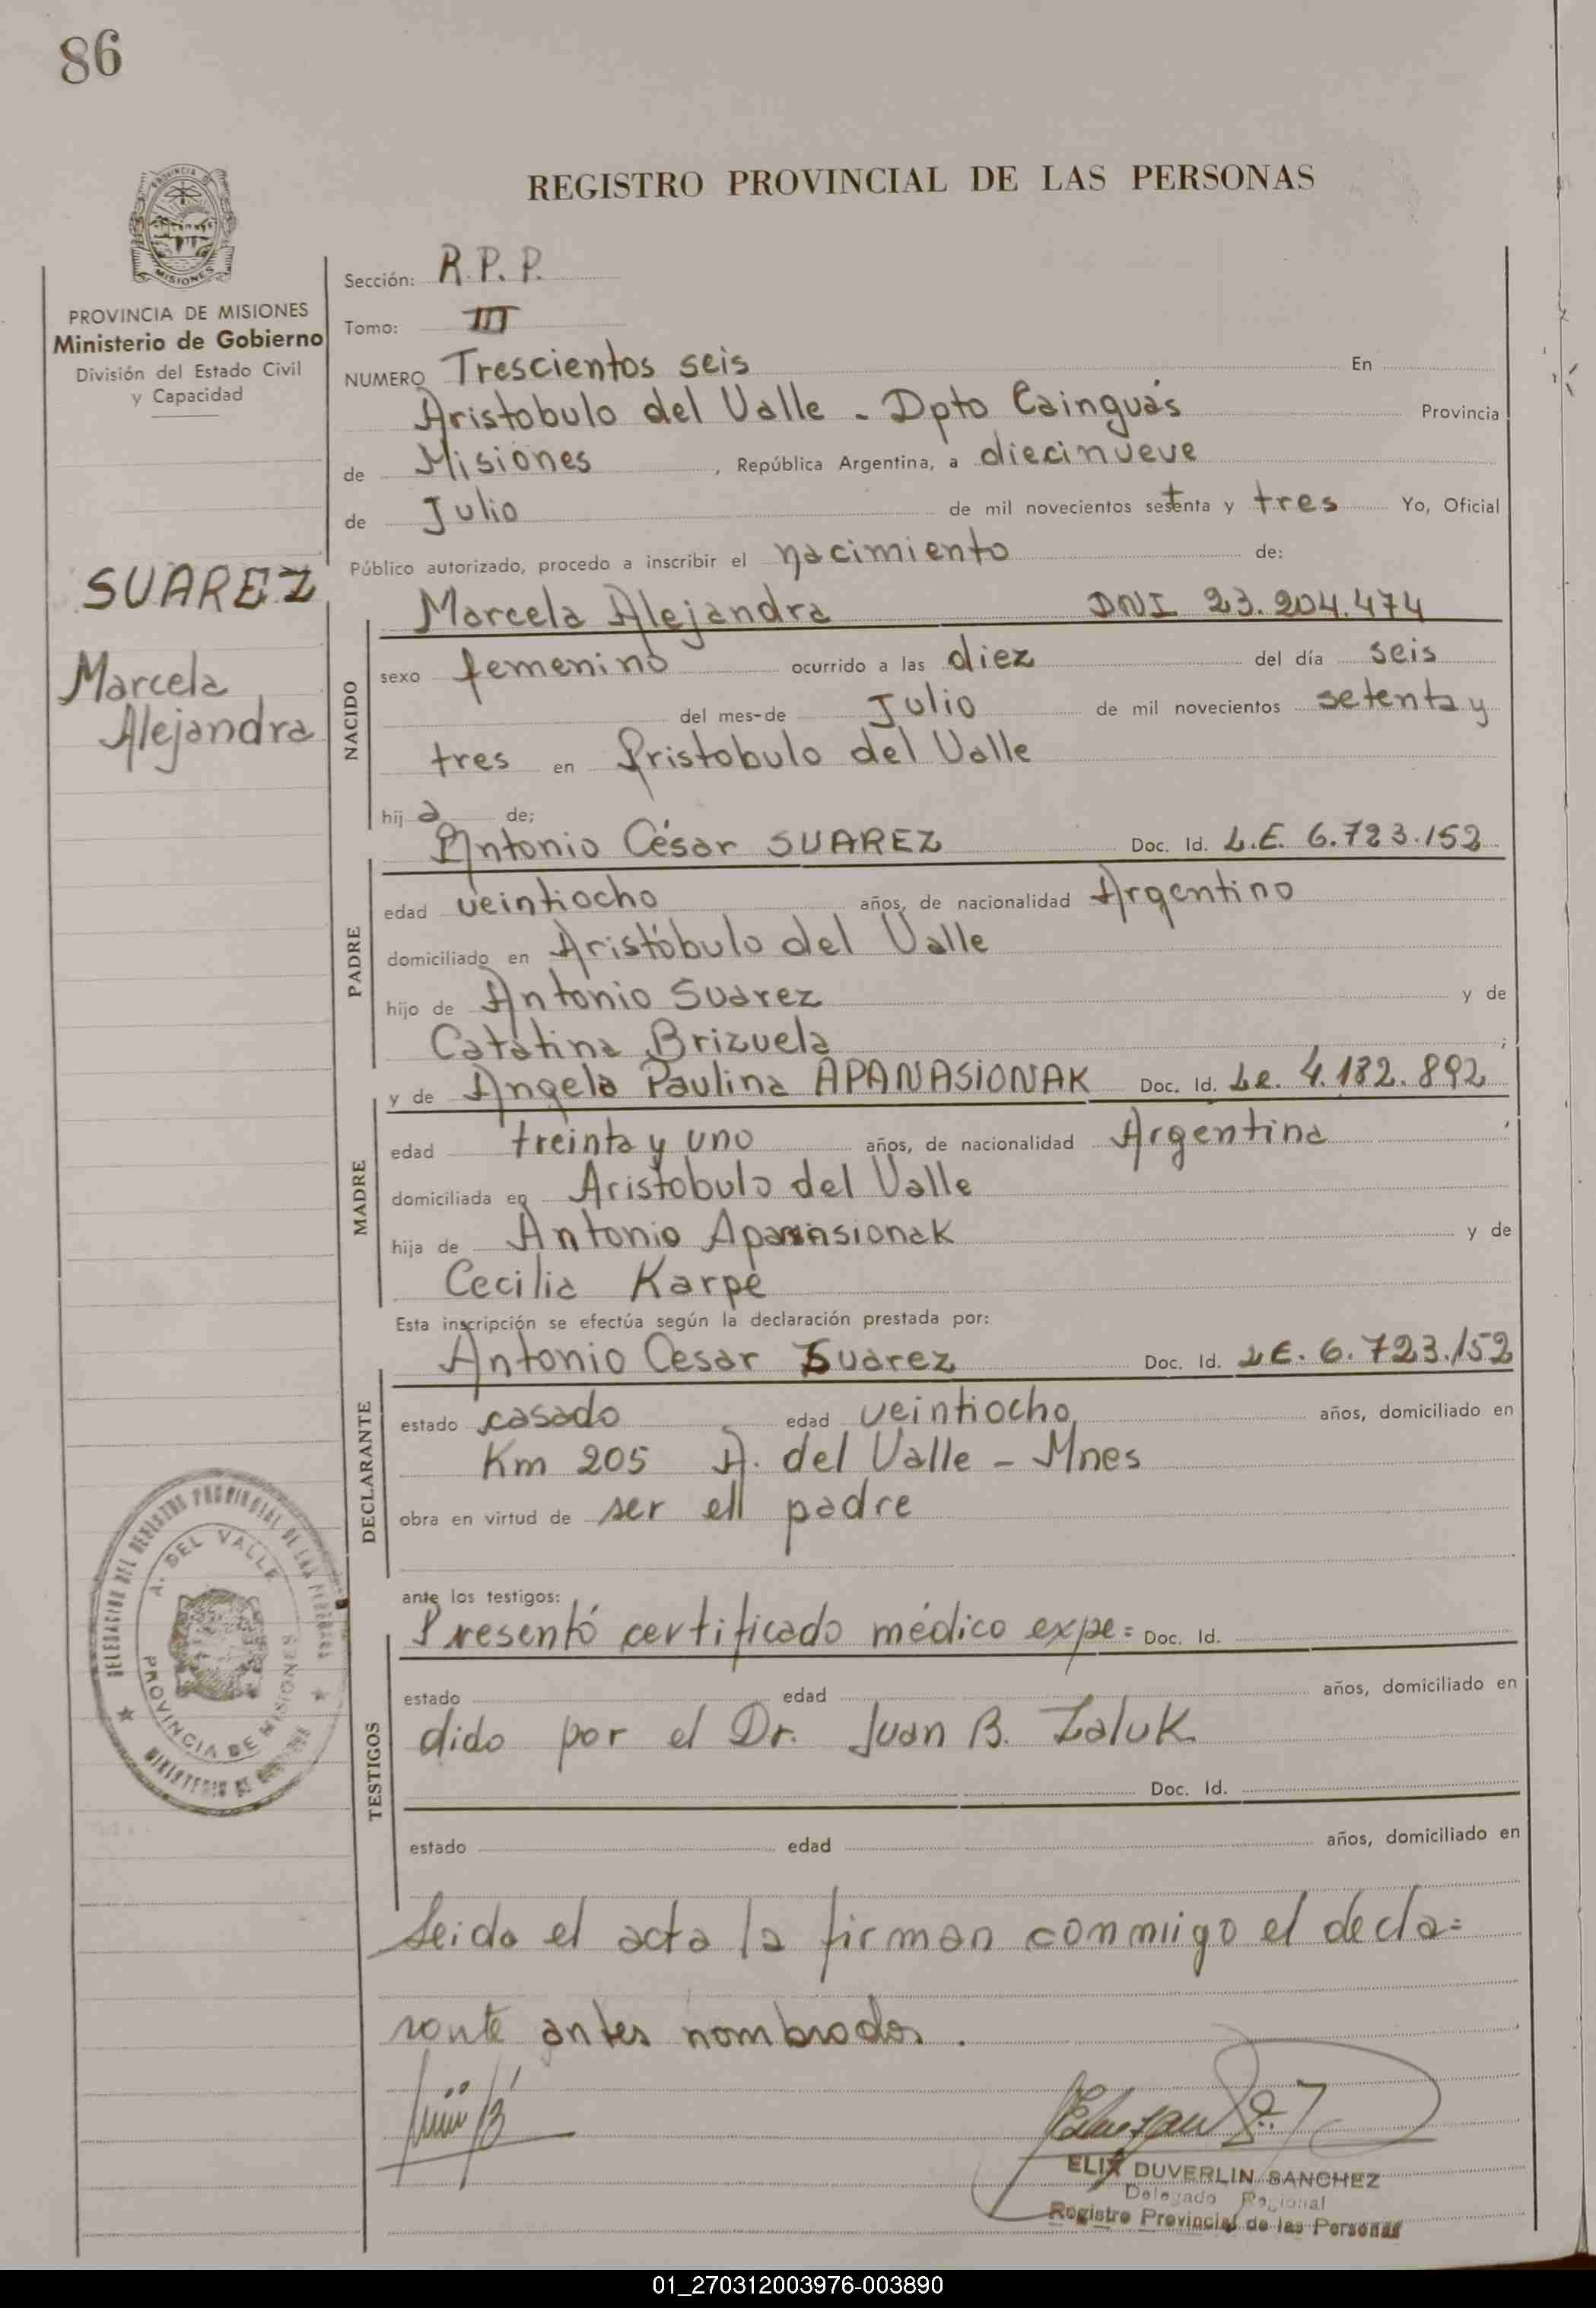 86
REGISTRO PROVINCIAL DE LAS PERSONAS
PROVINCIA DE MISIONES
Ministerio de Gobierno
División del Estado Civil
y Capacidad
SUAREZ
Marcela
Alejandra
Sección: R.P.P.
Tomo: III
NUMERO Trescientos seis En
Aristobulo del Valle - Dpto Cainguás Provincia
de Misiones, República Argentina, a diecinueve
de Julio de mil novecientos setenta y tres Yo, Oficial
Público autorizado, procedo a inscribir el nacimiento de:
NACIDO
Marcela Alejandra DNI 23.204.474
sexo femenino ocurrido a las diez del día seis
del mes-de Julio de mil novecientos setenta y
tres en Aristobulo del Valle
hij a de;
PADRE
Antonio César SUAREZ Doc. Id. L.E. 6.723.152
edad veintiocho años, de nacionalidad Argentino
domiciliado en Aristóbulo del Valle
hijo de Antonio Suarez y de
Catatina Brizuela ;
MADRE
y de Angela Paulina APANASIONAK Doc. Id. Le. 4.182.892
edad treinta y uno años, de nacionalidad Argentina
domiciliada en Aristobulo del Valle
hija de Antonio Apanasionak y de
Cecilia Karpé
Esta inscripción se efectúa según la declaración prestada por:
DECLARANTE
Antonio Cesar Suarez Doc. Id. LE. 6.723.152
estado casado edad veintiocho años, domiciliado en
Km 205 A. del Valle - Mnes
obra en virtud de ser ell padre
ante los testigos:
TESTIGOS
Presentó certificado médico expe= Doc. Id.
estado edad años, domiciliado en
dido por el Dr. Juan B. Zaluk
Doc. Id.
estado edad años, domiciliado en
Leida el acta la firman conmiigo el decla=
rante antes nombrados.
DELEGACION DEL REGISTRO PROVINCIAL DE LAS PERSONAS
A. DEL VALLE
PROVINCIA DE MISIONES
MINISTERIO DE GOBIERNO
ELIX DUVERLIN SANCHEZ
Delegado Regional
Registro Provincial de las Personas
01_270312003976-003890